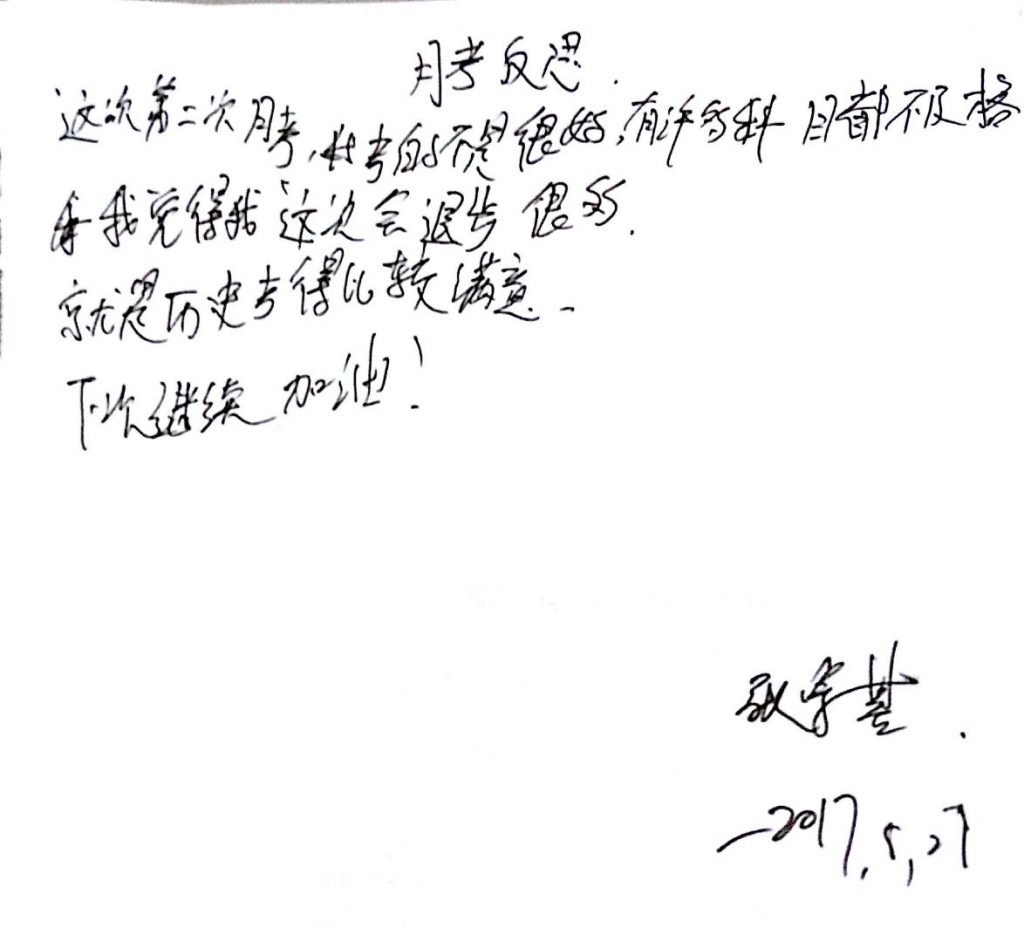 月考反思.
这次第二次月考,考的不是很好,有许多科目都不及格
我觉得我这次会退步很多.
就是历史考得比较满意.
下次继续加油!
张宇基.
2017.5.27